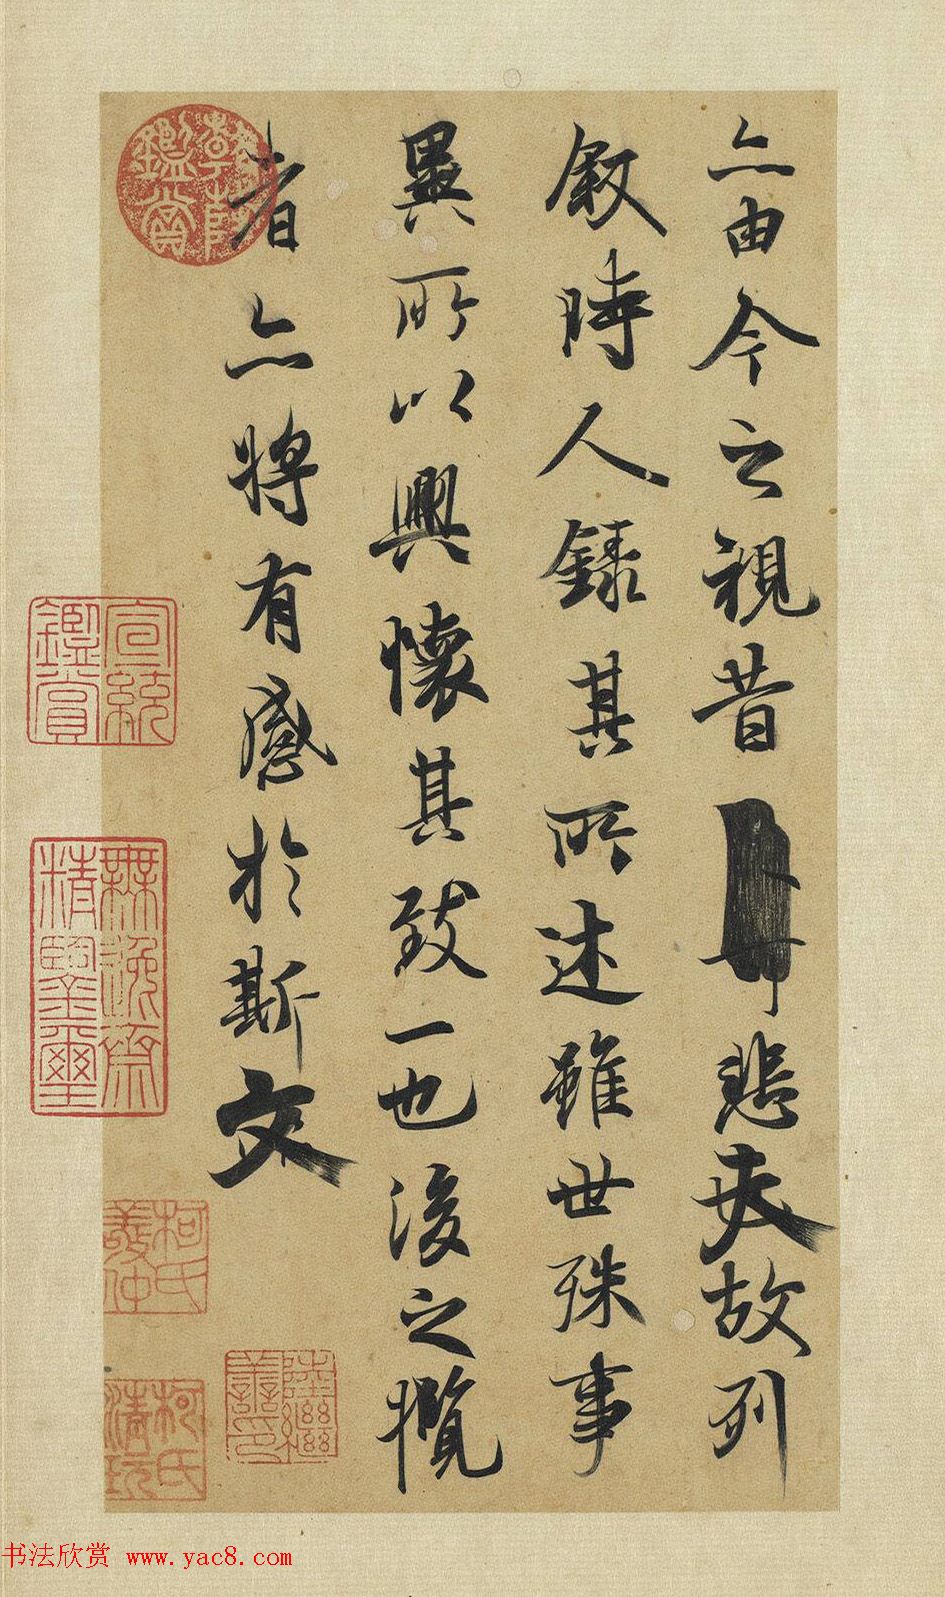 亦由今之視昔悲夫故列
叙時人錄其所述雖世殊事
異所以興懷其致一也後之攬
者亦將有感於斯文
乾隆鑑賞
宣統鑑賞
無逸齋精鑒璽
柯氏敬仲
柯氏清玩
陸繼善印
书法欣赏 www.yac8.com